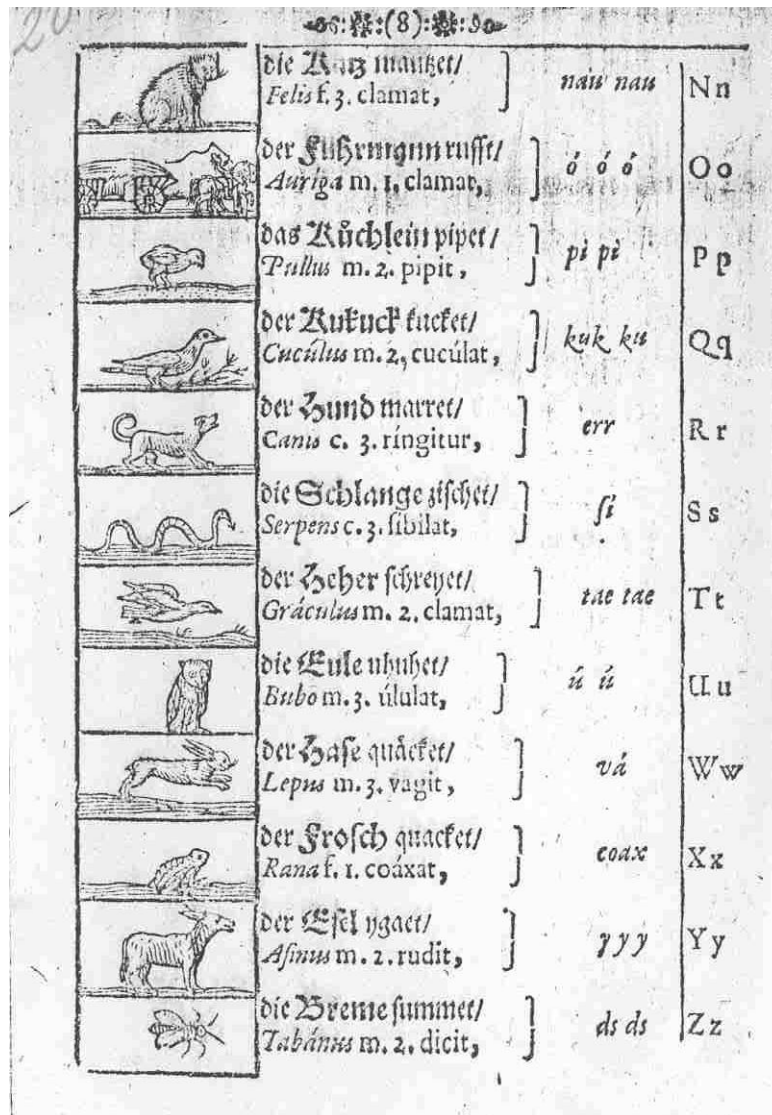 20
:(8):
die Katz mautzet/
Felis f. 3. clamat, nau nau Nn
der Fuhrmann rufft/
Auríga m. 1. clamat, ó ó ó Oo
das Kůchlein pipet/
Pullus m. 2. pipit, pì pì Pp
der Kukuck kucket/
Cucúlus m. 2, cucúlat, kuk ku Qq
der Hund marret/
Canis c. 3. ríngitur, err Rr
die Schlange zischet/
Serpens c. 3. síbilat, ſi Ss
der Heher schreyet/
Gráculus m. 2. clamat, tae tae Tt
die Eule uhuhet/
Bubo m. 3. úlulat, ú ú Uu
der Hase quäcket/
Lepus m. 3. vagit, vá Ww
der Frosch quacket/
Rana f. 1. coáxat, coax Xx
der Esel ygaet/
Asinus m. 2. rudit, yyy Yy
die Breme summet/
Tabánus m. 2. dicit, ds ds Zz